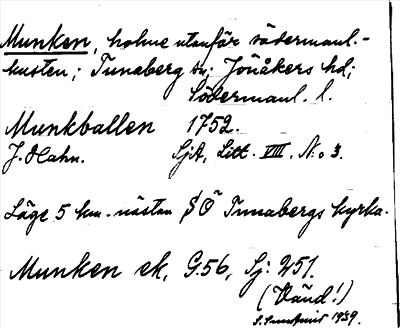 Munken, holme utanför södermanl.-
kusten; Tunaberg sn; Jönåkers hd;
Södermanl. l.
Munkballen 1752.
J. Hahn. SjA, Litt. VIII. No 3.
Läge 5 km. nästan S Ö Tunabergs kyrka.
Munken ek, G.56, Sj: 251.
(Vänd!)
1939.